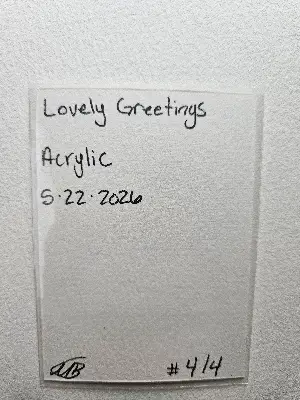 Lovely Greetings
Acrylic
5·22·2026
# 4/4